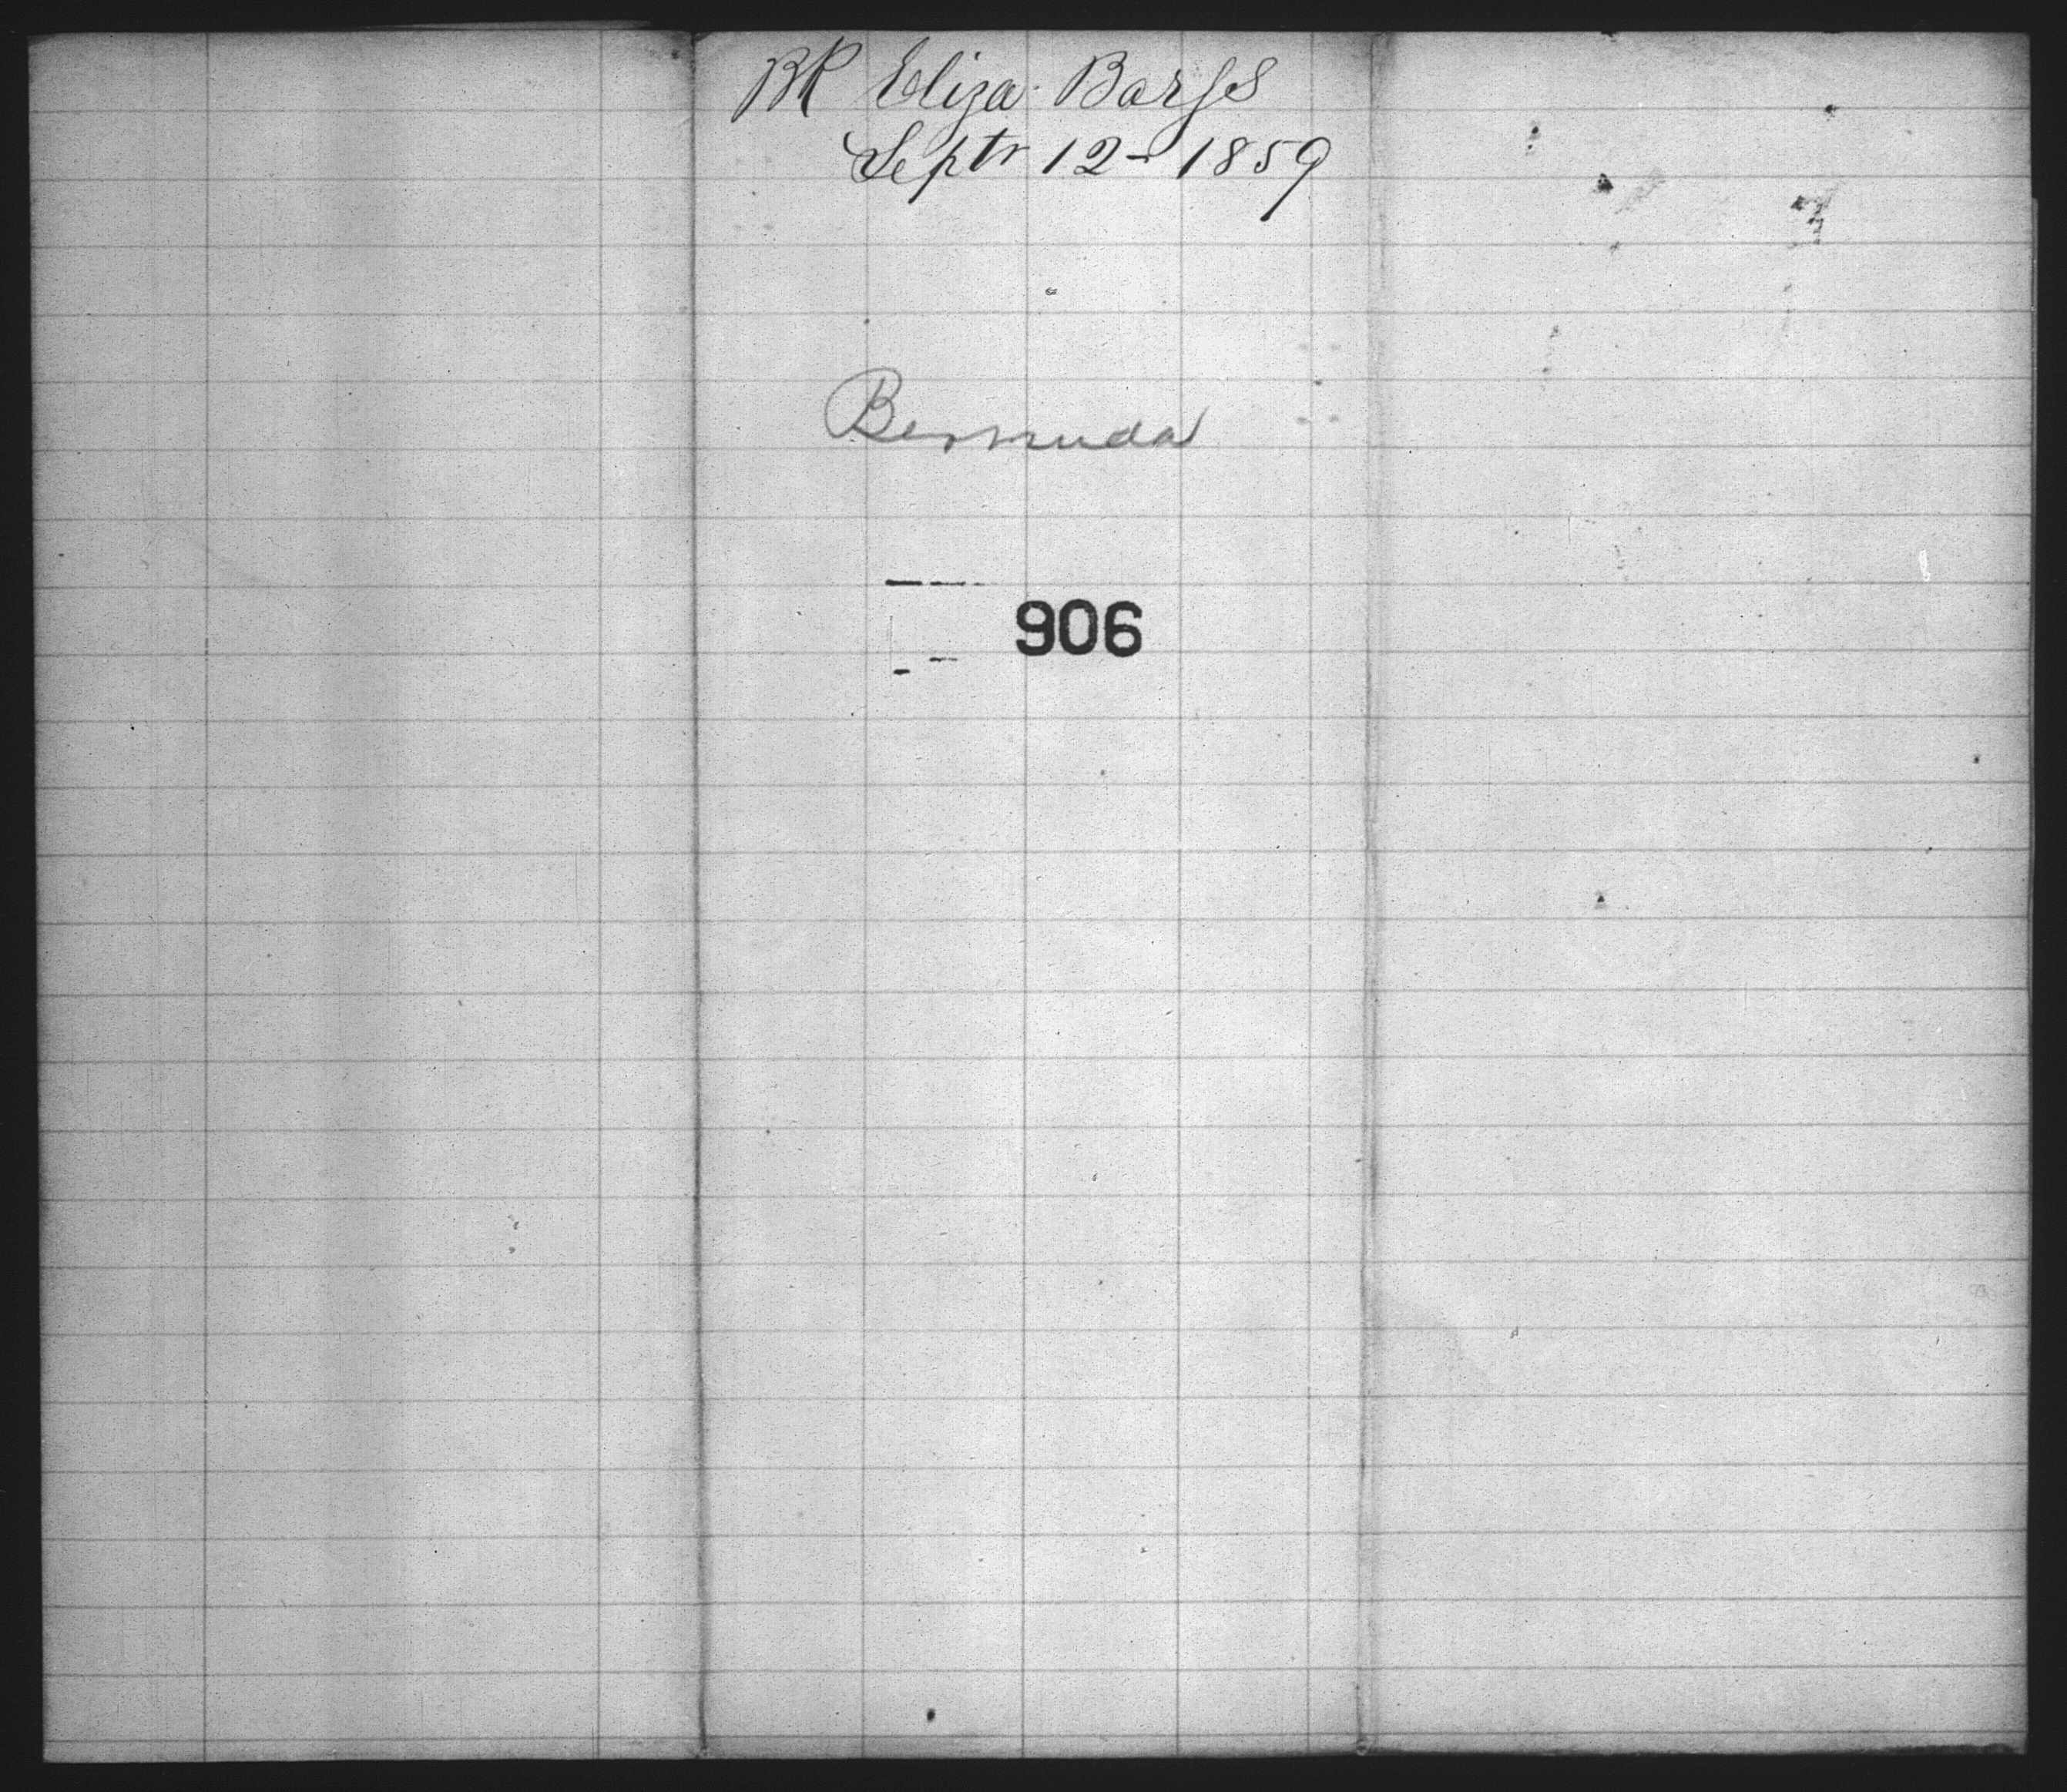 BK Eliza Barss
Septr 12 - 1859
Bermuda
906